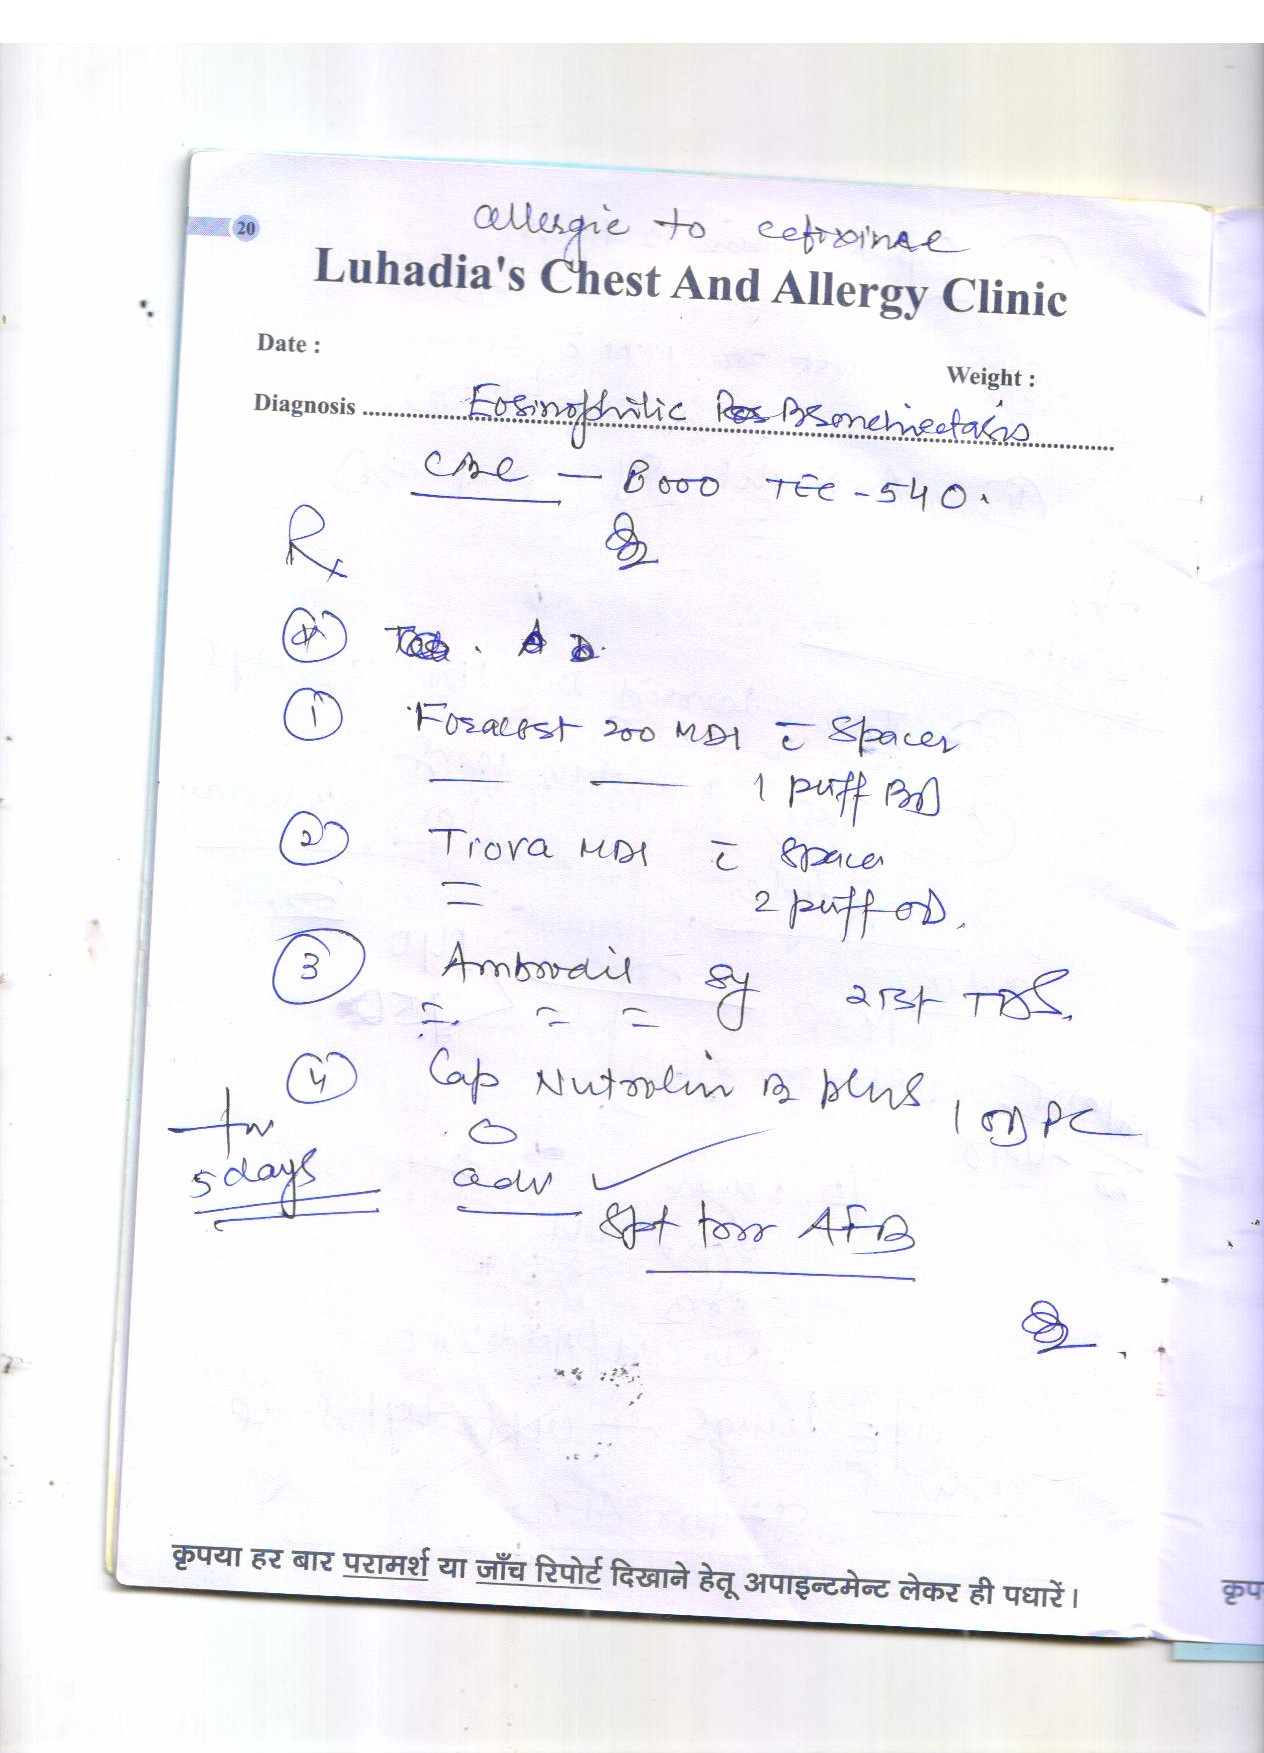 20
allergic to cefixime
Luhadia's Chest And Allergy Clinic
Date :
Weight :
Diagnosis Eosinophilic Bronchiectasis
CBC - 8000 TEC - 540.
Rx
1 Foracort 200 MDI c̄ Spacer
1 puff BD
2 Tiova MDI c̄ Spacer
2 puff OD.
3 Ambrodil Sy 2 tsf TDS.
4 Cap Nutrolin B plus 1 OD PC
5 days
adv ✓
Spt for AFB
कृपया हर बार परामर्श या जाँच रिपोर्ट दिखाने हेतू अपाइन्टमेन्ट लेकर ही पधारें।
कृप